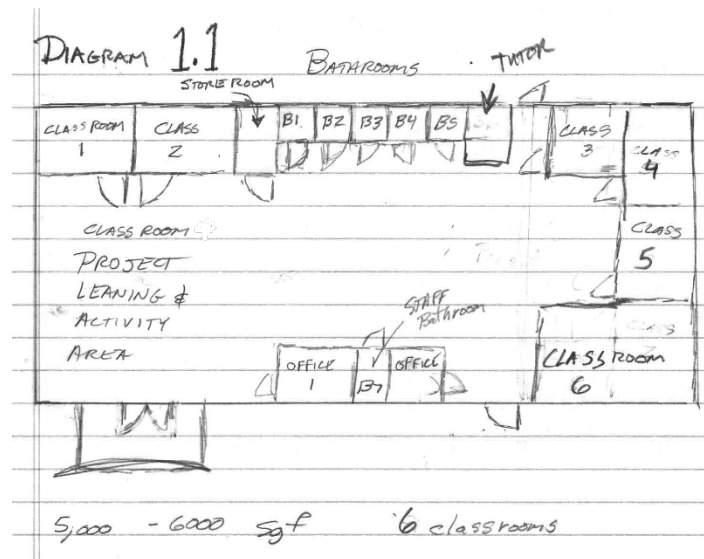 DIAGRAM 1.1
BATAROOMS
TUTOR
STORE ROOM
CLASSROOM
1
CLASS
2
B1 B2 B3 B4 B5
CLASS
3
CLASS
4
CLASS
5
CLASS ROOM
PROJECT
LEANING &
ACTIVITY
AREA
STAFF
Bathroom
OFFICE
1
B7
OFFICE
CLASSROOM
6
5,000 - 6000 sqf 6 classrooms